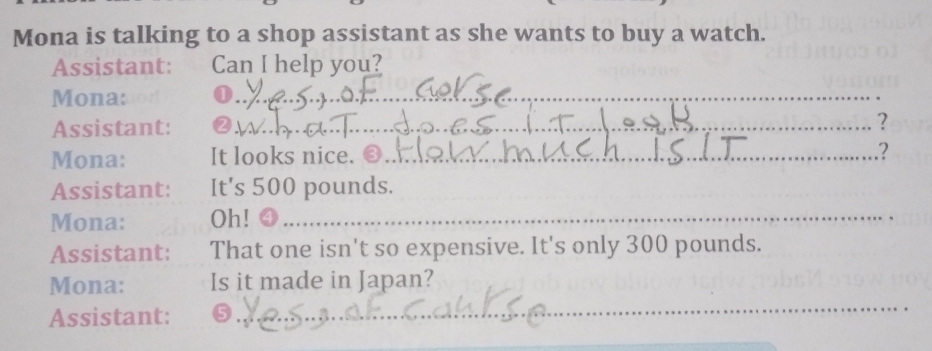 Mona is talking to a shop assistant as she wants to buy a watch.
Assistant: Can I help you?
Mona: ❶ Yes, of corse
Assistant: ❷ what does it look ?
Mona: It looks nice. ❸ How much is it ?
Assistant: It's 500 pounds.
Mona: Oh! ❹
Assistant: That one isn't so expensive. It's only 300 pounds.
Mona: Is it made in Japan?
Assistant: ❺ Yes, of course